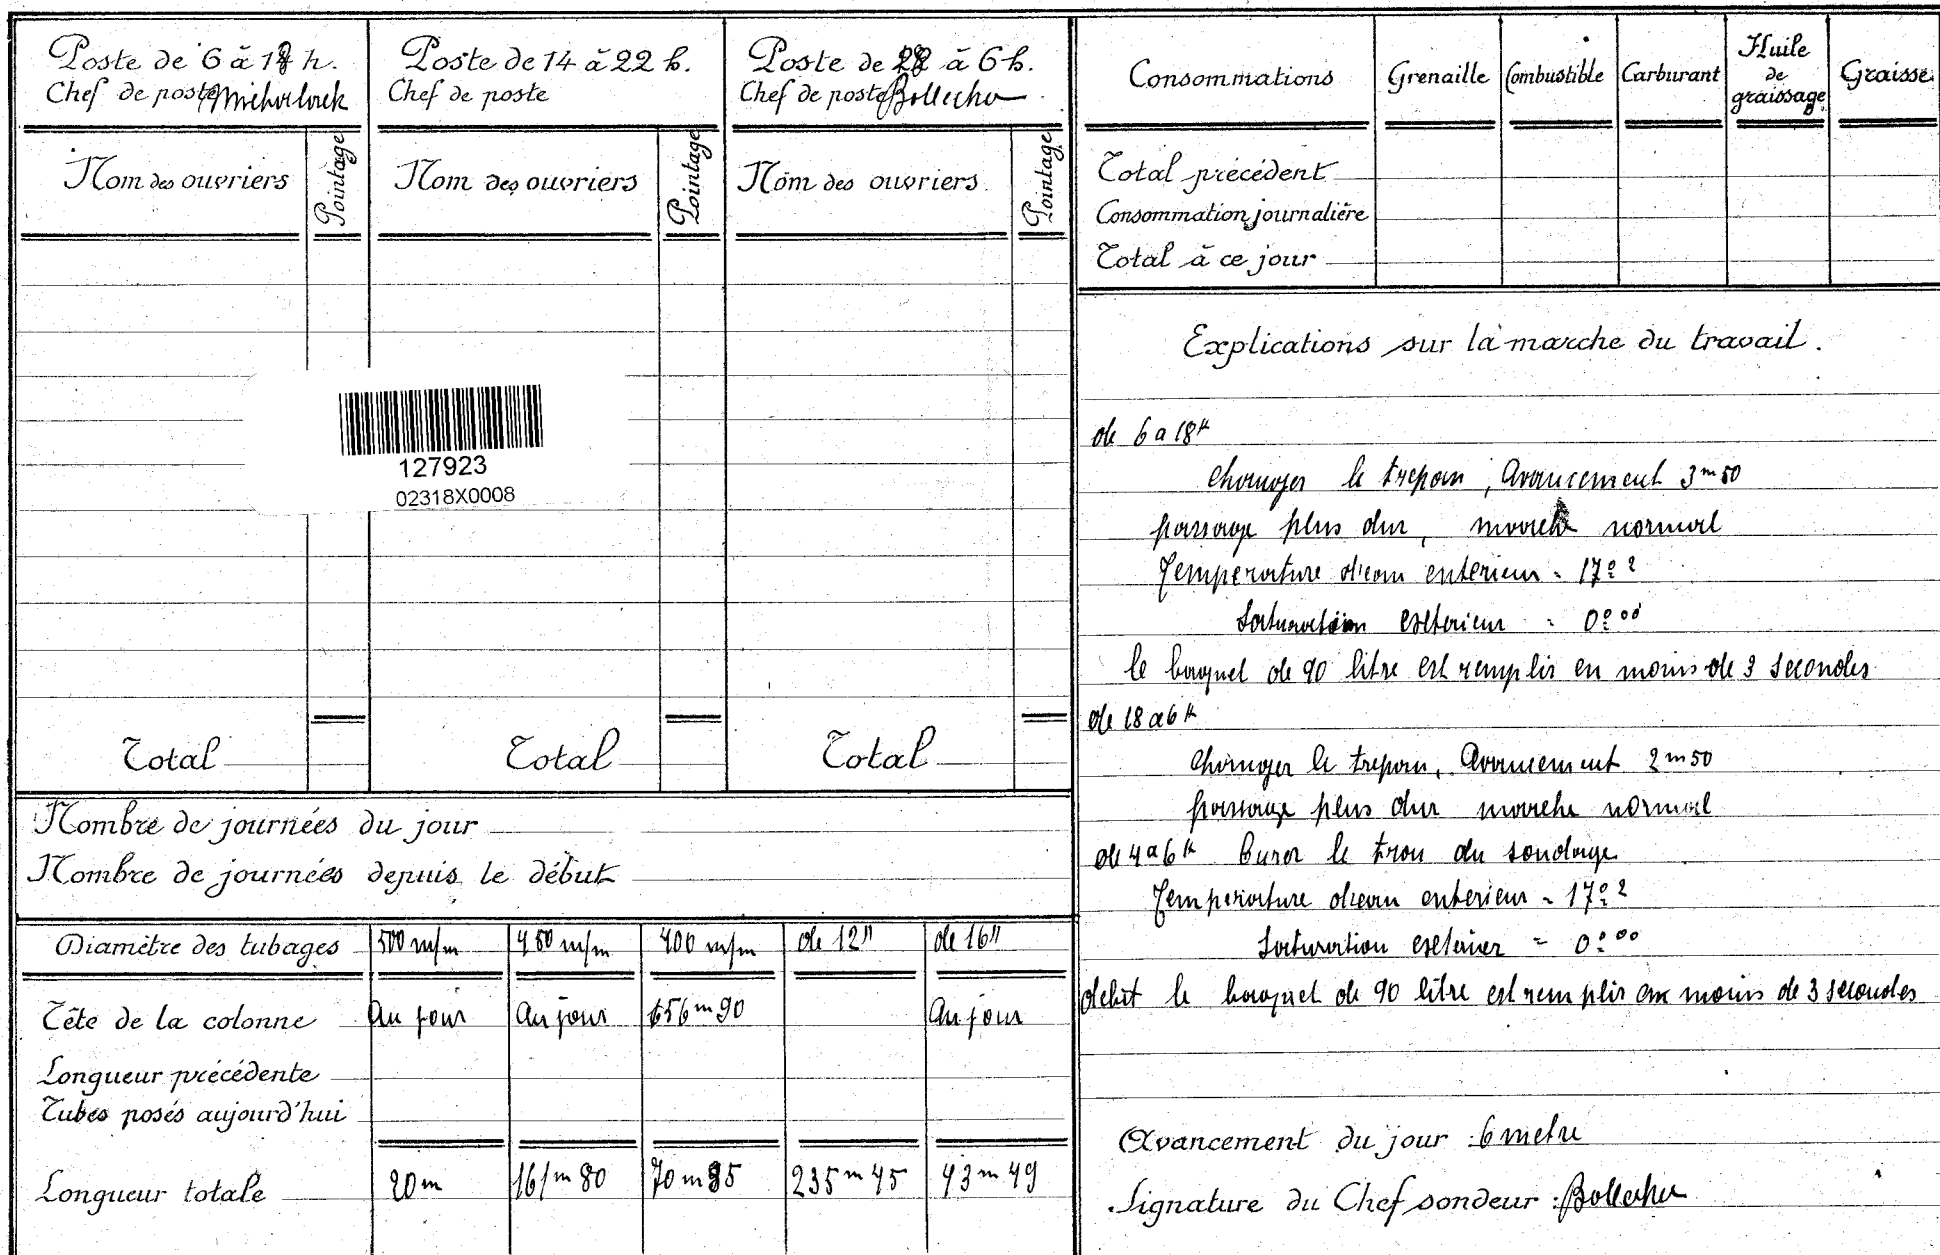 Poste de 6 à 18 h.
Chef de poste
Poste de 14 à 22 h.
Chef de poste
Poste de 22 à 6 h.
Chef de poste Bollecher
Nom des ouvriers
Pointage
Nom des ouvriers
Pointage
Nom des ouvriers
Pointage
127923
02318X0008
Total
Total
Total
Nombre de journées du jour
Nombre de journées depuis le début
Diamètre des tubages 500 m/m 450 m/m 400 m/m de 12" de 16"
Tête de la colonne Au jour Au jour 156m90 Au jour
Longueur précédente
Tubes posés aujourd'hui
Longueur totale 20m 161m80 70m85 235m45 43m49
Consommations Grenaille Combustible Carburant Huile de graissage Graisse
Total précédent
Consommation journalière
Total à ce jour
Explications sur la marche du travail.
de 6 a 18h
changer le trepan, Avancement 3m50
passage plus dur, marche normal
Temperature d'eau enterieur = 17°2
Saturation exterieur = 0°00
le baquet de 90 litre est remplir en moins de 3 secondes
de 18 a 6h
changer le trepan, Avancement 2m50
passage plus dur marche normal
de 4 a 6h Curer le trou du sondage
Temperature d'eau enterieur = 17°2
Saturation = 0°00
debit le baquet de 90 litre est remplir en moins de 3 secondes
Avancement du jour : 6 metre
Signature du Chef sondeur : Bollecher